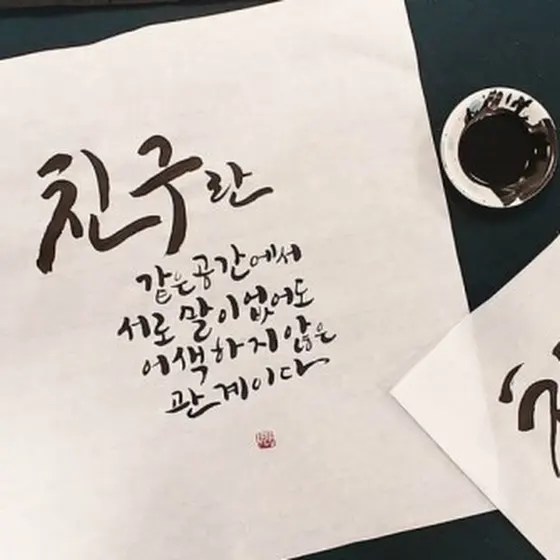 친구란
같은 공간에서
서로 말이 없어도
어색하지 않은
관계이다